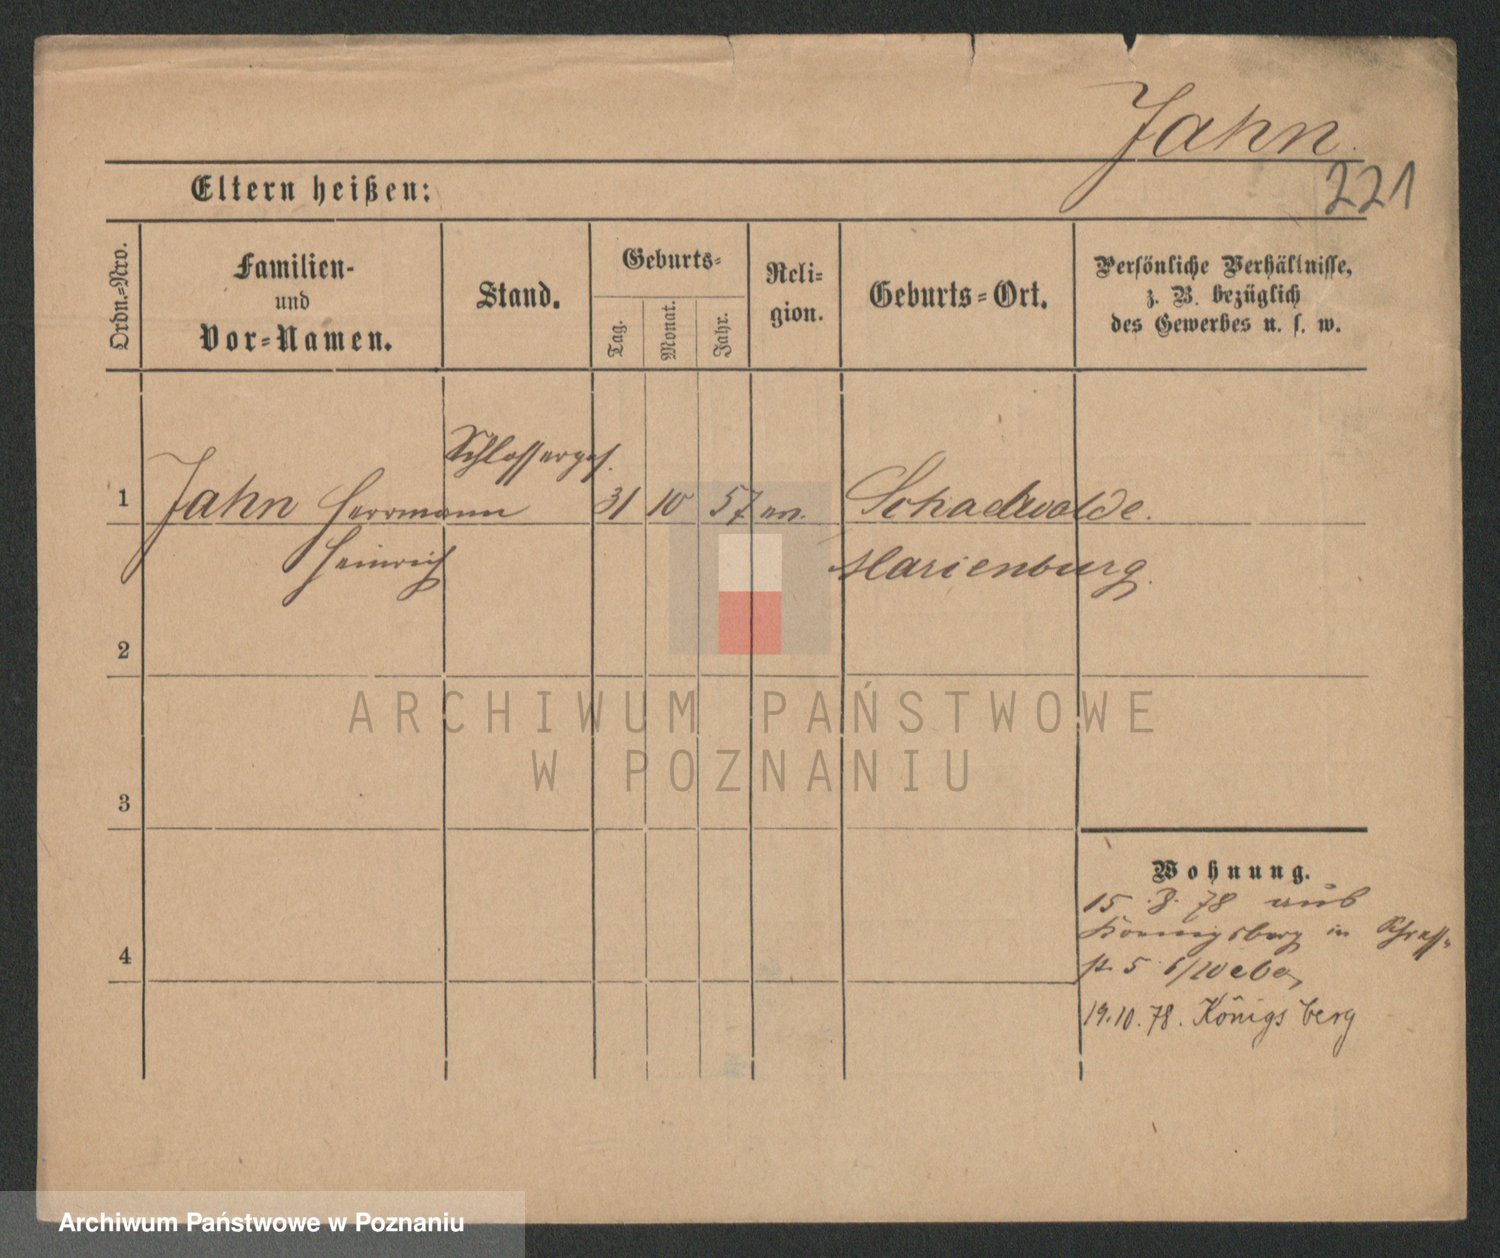 Jahn
221
Eltern heißen:
Ordn.-Nro.
Familien-
und
Vor-Namen.
Stand.
Geburts-
Tag.
Monat.
Jahr.
Reli-
gion.
Geburts-Ort.
Persönliche Verhältnisse,
z. B. bezüglich
des Gewerbes u. s. w.
Schlosserges.
1 Jahn Herrmann 31 10 57 ev. Schadwalde.
Heinrich Marienburg.
2
ARCHIWUM PAŃSTWOWE
W POZNANIU
3
Wohnung.
15. 3. 78 aus
Koenigsberg in
4
5
19.10.78. Königsberg
Archiwum Państwowe w Poznaniu